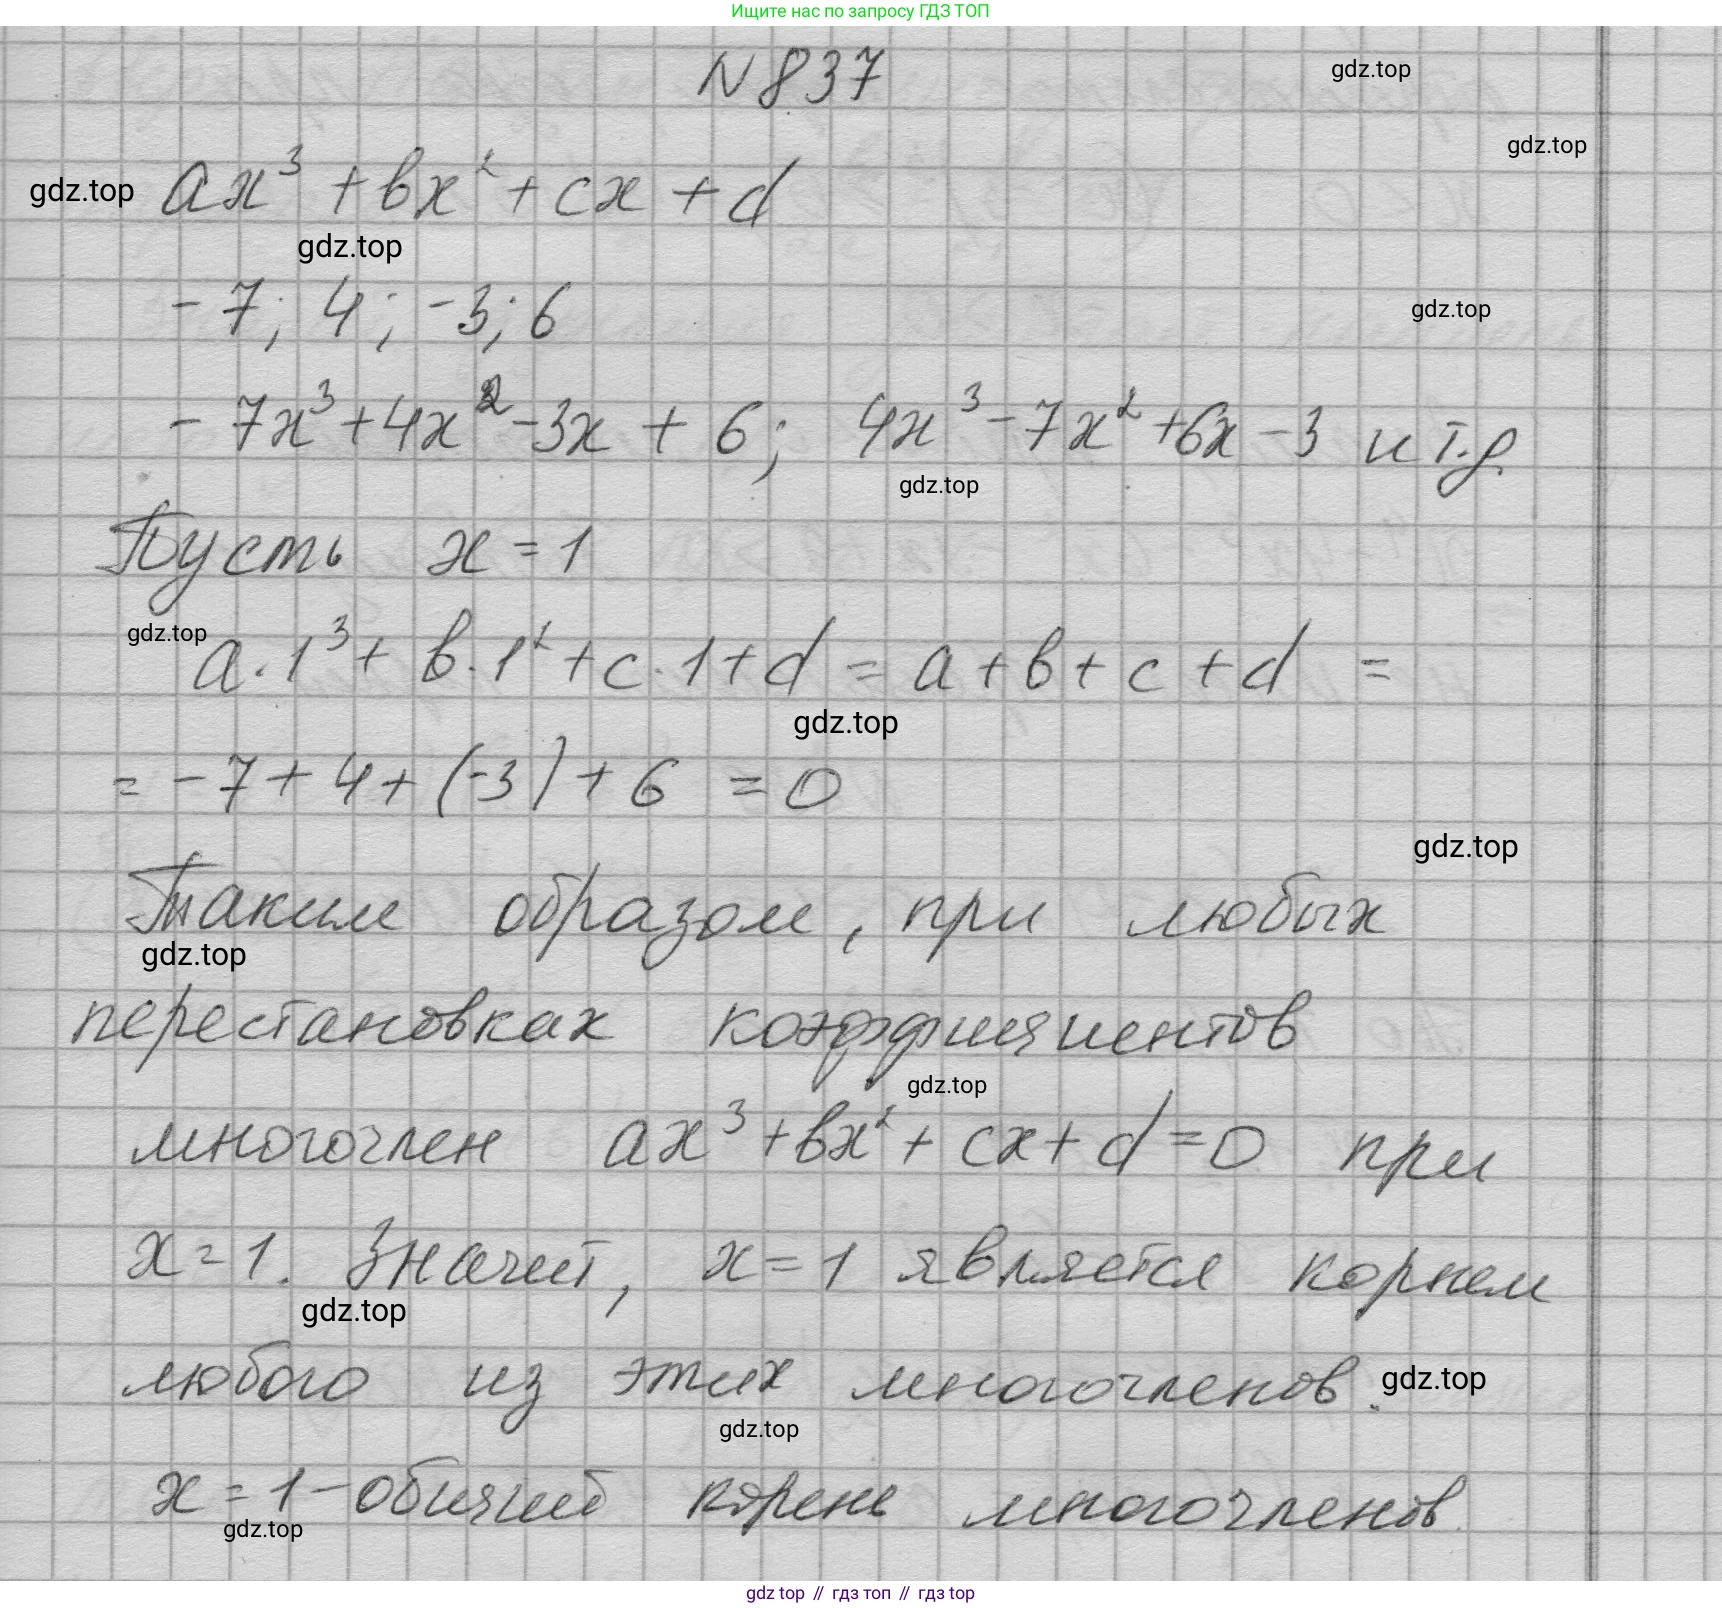 Ищите нас по запросу ГДЗ ТОП
N837
gdz.top
gdz.top
gdz.top ax³ + bx² + cx + d
gdz.top
-7; 4; -3; 6
gdz.top
-7x³ + 4x² - 3x + 6; 4x³ - 7x² + 6x - 3 и т.д.
gdz.top
Пусть x = 1
gdz.top
a·1³ + b·1² + c·1 + d = a + b + c + d =
gdz.top
= -7 + 4 + (-3) + 6 = 0
gdz.top
Таким образом, при любых
gdz.top
перестановках коэффициентов
gdz.top
многочлен ax³ + bx² + cx + d = 0 при
x = 1. Значит, x = 1 является корнем
gdz.top
любого из этих многочленов.
gdz.top
gdz.top
x = 1 - общий корень многочленов.
gdz.top
gdz top // гдз топ // гдз top